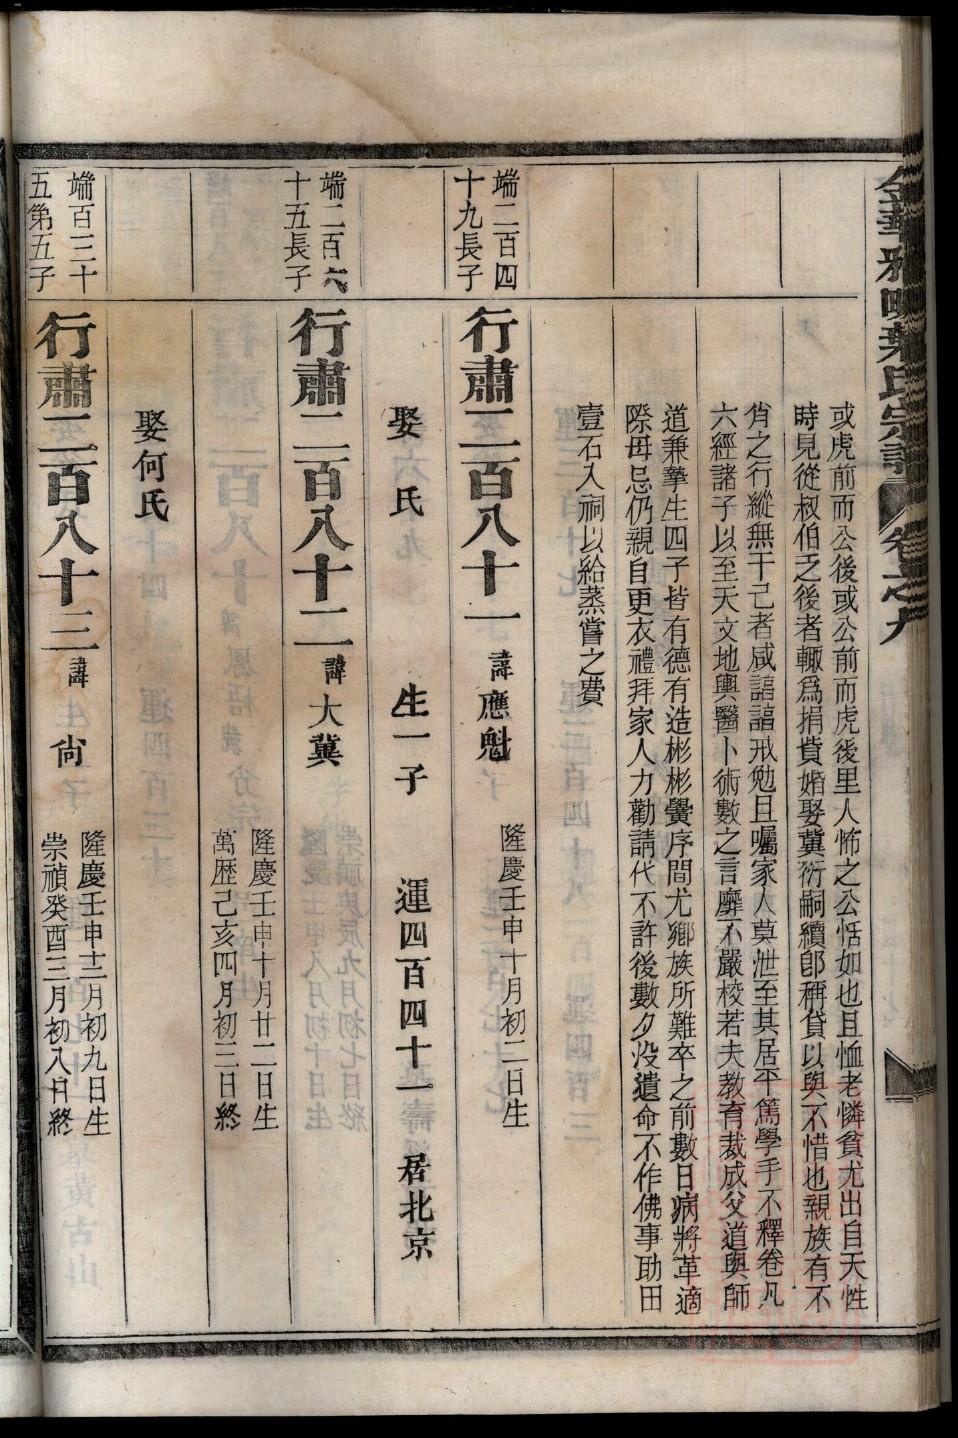 金華雅畈葉氏宗譜 卷之九
或虎前而公後或公前而虎後里人怖之公恬如也且恤老憐貧尤出自天性
時見從叔伯之後者輙爲捐貲婚娶冀衍嗣續卽稱貸以與不惜也親族有不
肖之行縱無干己者咸諄諄戒勉且囑家人莫泄至其居平篤學手不釋卷凡
六經諸子以至天文地輿醫卜術數之言靡不嚴校若夫教育裁成父道與師
道兼摯生四子皆有德有造彬彬黌序間尤鄉族所難卒之前數日病將革適
際母忌仍親自更衣禮拜家人力勸請代不許後數夕没遺命不作佛事助田
壹石入祠以給蒸嘗之費
端二百四
十九長子
行肅二百八十一 諱應魁 隆慶壬申十月初二日生
娶 氏 生一子 運四百四十一 居北京
端二百六
十五長子
行肅二百八十二 諱大冀 隆慶壬申十月廿二日生
萬歷己亥四月初三日終
娶何氏
端百三十
五第五子
行肅二百八十三 諱尙 隆慶壬申十二月初九日生
崇禎癸酉三月初八日終